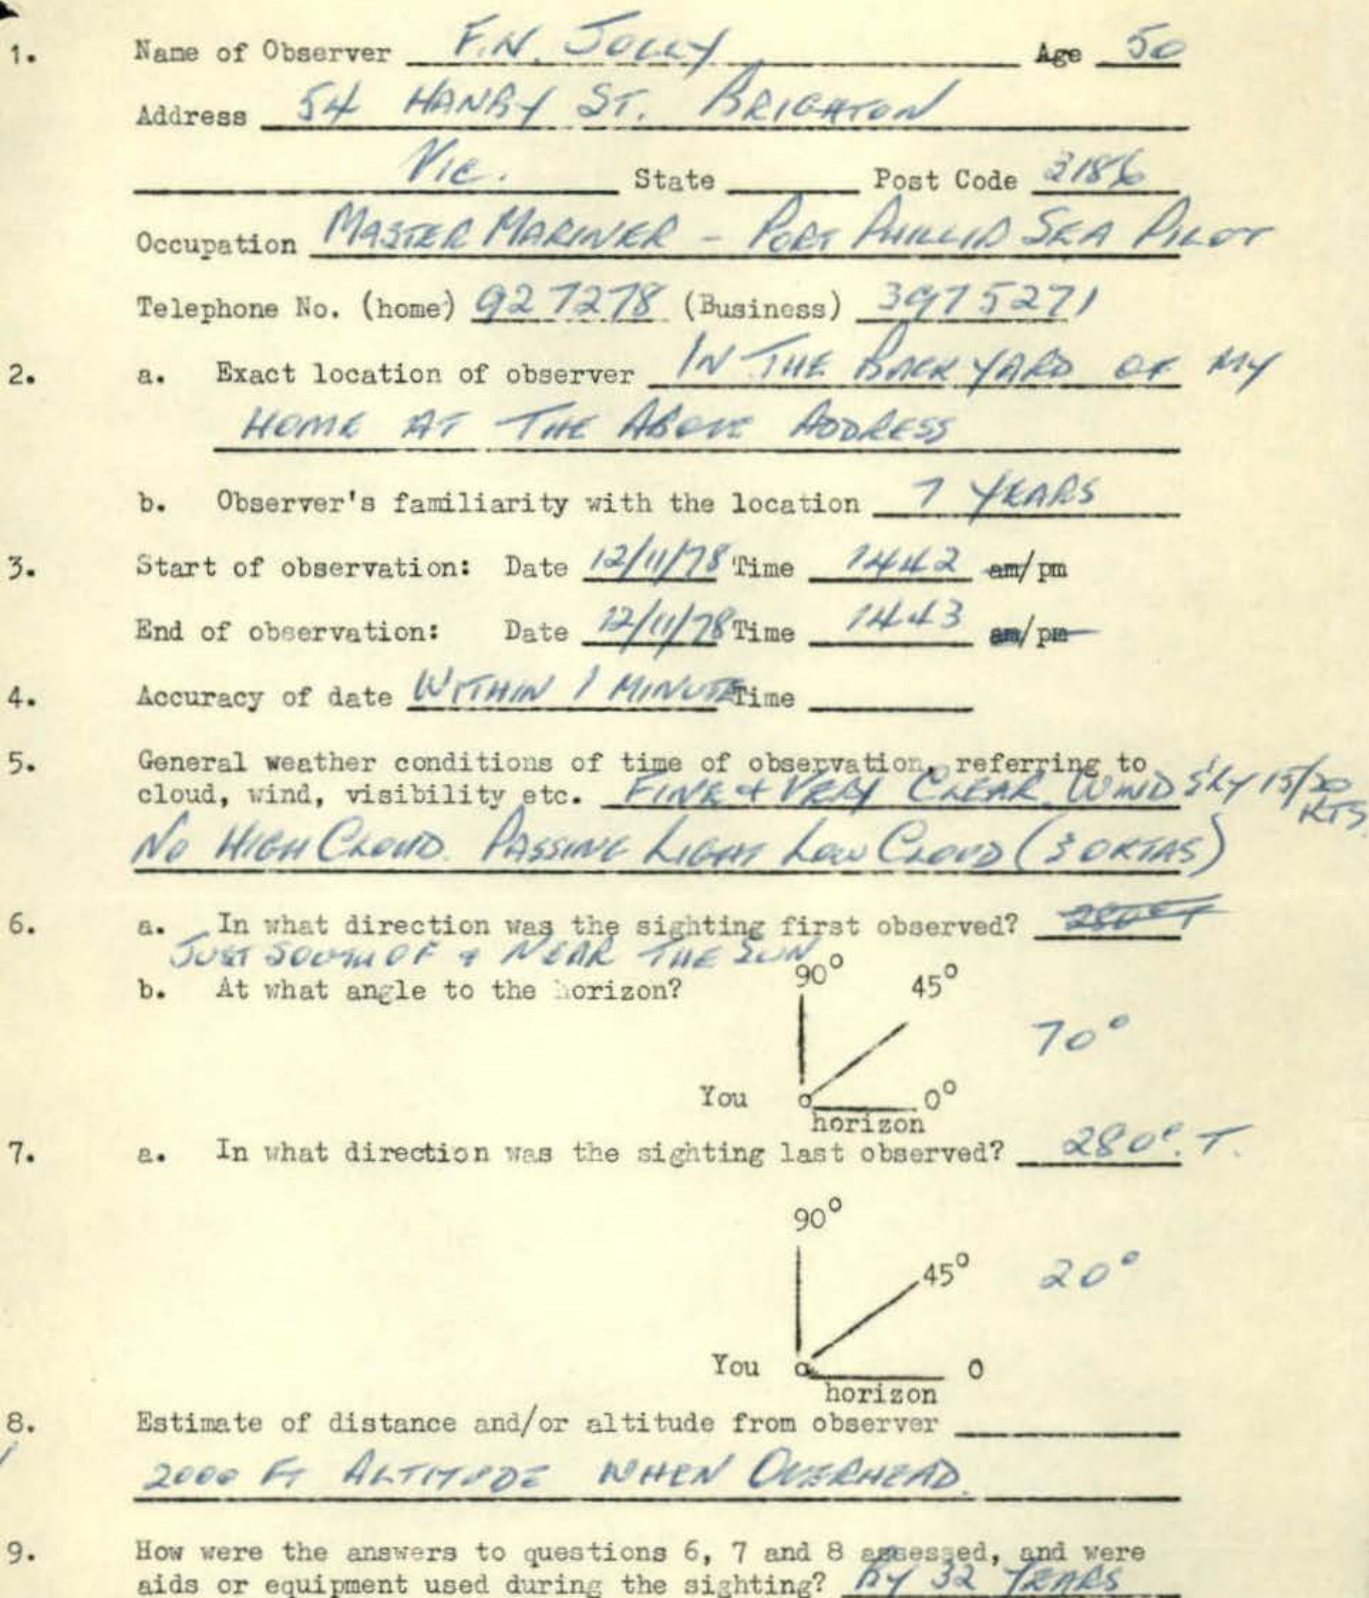 1. Name of Observer F.N. JOLLY Age 50
Address 54 HANBY ST. BRIGHTON
VIC. State Post Code 3186
Occupation MASTER MARINER - PORT PHILLIP SEA PILOT
Telephone No. (home) 927278 (Business) 3975271
2. a. Exact location of observer IN THE BACK YARD OF MY
HOME AT THE ABOVE ADDRESS
b. Observer's familiarity with the location 7 YEARS
3. Start of observation: Date 12/11/78 Time 1442 am/pm
End of observation: Date 12/11/78 Time 1443 am/pm
4. Accuracy of date WITHIN 1 MINUTE Time
5. General weather conditions of time of observation, referring to
cloud, wind, visibility etc. FINE + VERY CLEAR WIND S'LY 15/20 KTS
NO HIGH CLOUD. PASSING LIGHT LOW CLOUD (3 OKTAS)
6. a. In what direction was the sighting first observed? 280° T
JUST SOUTH OF + NEAR THE SUN
b. At what angle to the horizon? 90° 45°
70°
You 0°
horizon
7. a. In what direction was the sighting last observed? 280°. T.
90°
45° 20°
You 0
horizon
8. Estimate of distance and/or altitude from observer
2000 FT ALTITUDE WHEN OVERHEAD.
9. How were the answers to questions 6, 7 and 8 assessed, and were
aids or equipment used during the sighting? BY 32 YEARS